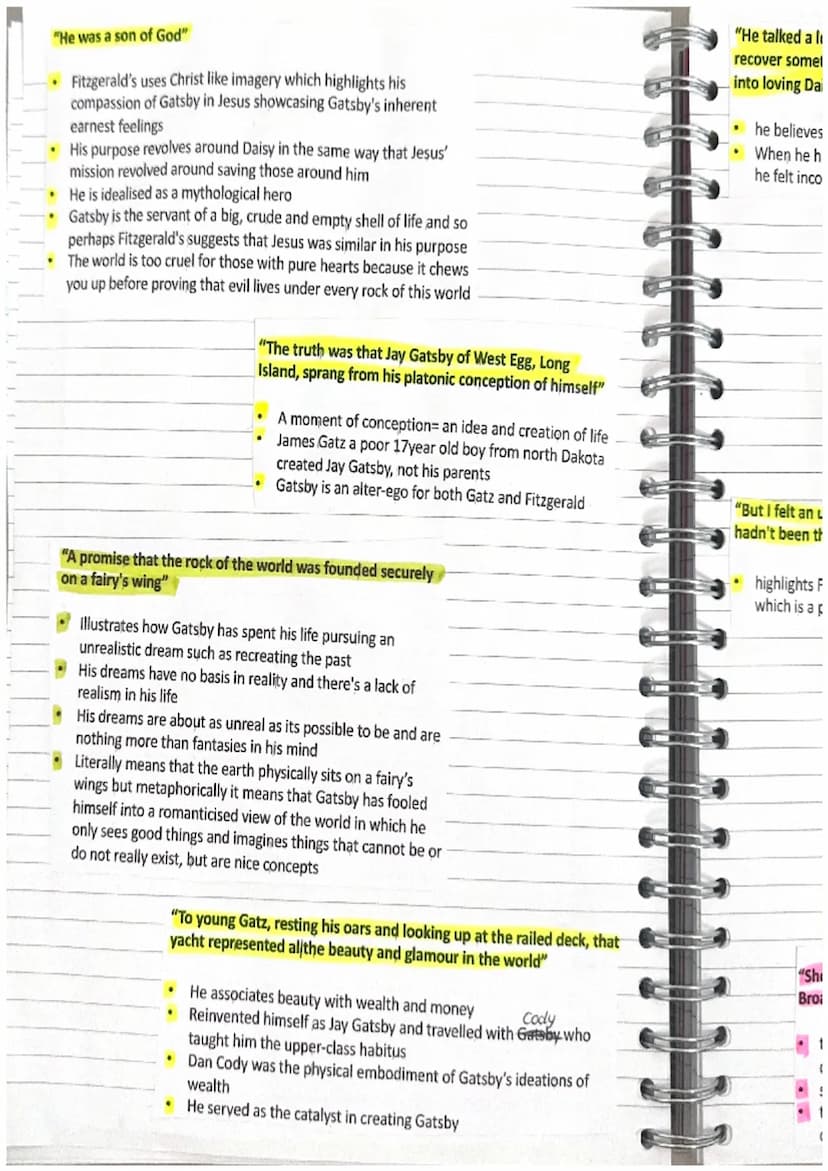 “He was a son of God”
• Fitzgerald's uses Christ like imagery which highlights his
compassion of Gatsby in Jesus showcasing Gatsby's inherent
earnest feelings
• His purpose revolves around Daisy in the same way that Jesus'
mission revolved around saving those around him
• He is idealised as a mythological hero
• Gatsby is the servant of a big, crude and empty shell of life and so
perhaps Fitzgerald's suggests that Jesus was similar in his purpose
• The world is too cruel for those with pure hearts because it chews
you up before proving that evil lives under every rock of this world
“The truth was that Jay Gatsby of West Egg, Long
Island, sprang from his platonic conception of himself”
• A moment of conception= an idea and creation of life
• James Gatz a poor 17year old boy from north Dakota
created Jay Gatsby, not his parents
• Gatsby is an alter-ego for both Gatz and Fitzgerald
“A promise that the rock of the world was founded securely
on a fairy's wing”
• Illustrates how Gatsby has spent his life pursuing an
unrealistic dream such as recreating the past
• His dreams have no basis in reality and there's a lack of
realism in his life
• His dreams are about as unreal as its possible to be and are
nothing more than fantasies in his mind
• Literally means that the earth physically sits on a fairy's
wings but metaphorically it means that Gatsby has fooled
himself into a romanticised view of the world in which he
only sees good things and imagines things that cannot be or
do not really exist, but are nice concepts
“To young Gatz, resting his oars and looking up at the railed deck, that
yacht represented all the beauty and glamour in the world”
• He associates beauty with wealth and money
Cody
• Reinvented himself as Jay Gatsby and travelled with Gatsby who
taught him the upper-class habitus
• Dan Cody was the physical embodiment of Gatsby's ideations of
wealth
• He served as the catalyst in creating Gatsby
“He talked a
recover
into loving
• he believes
• When he
he felt
“But I felt an
hadn't been
• highlights
which is a